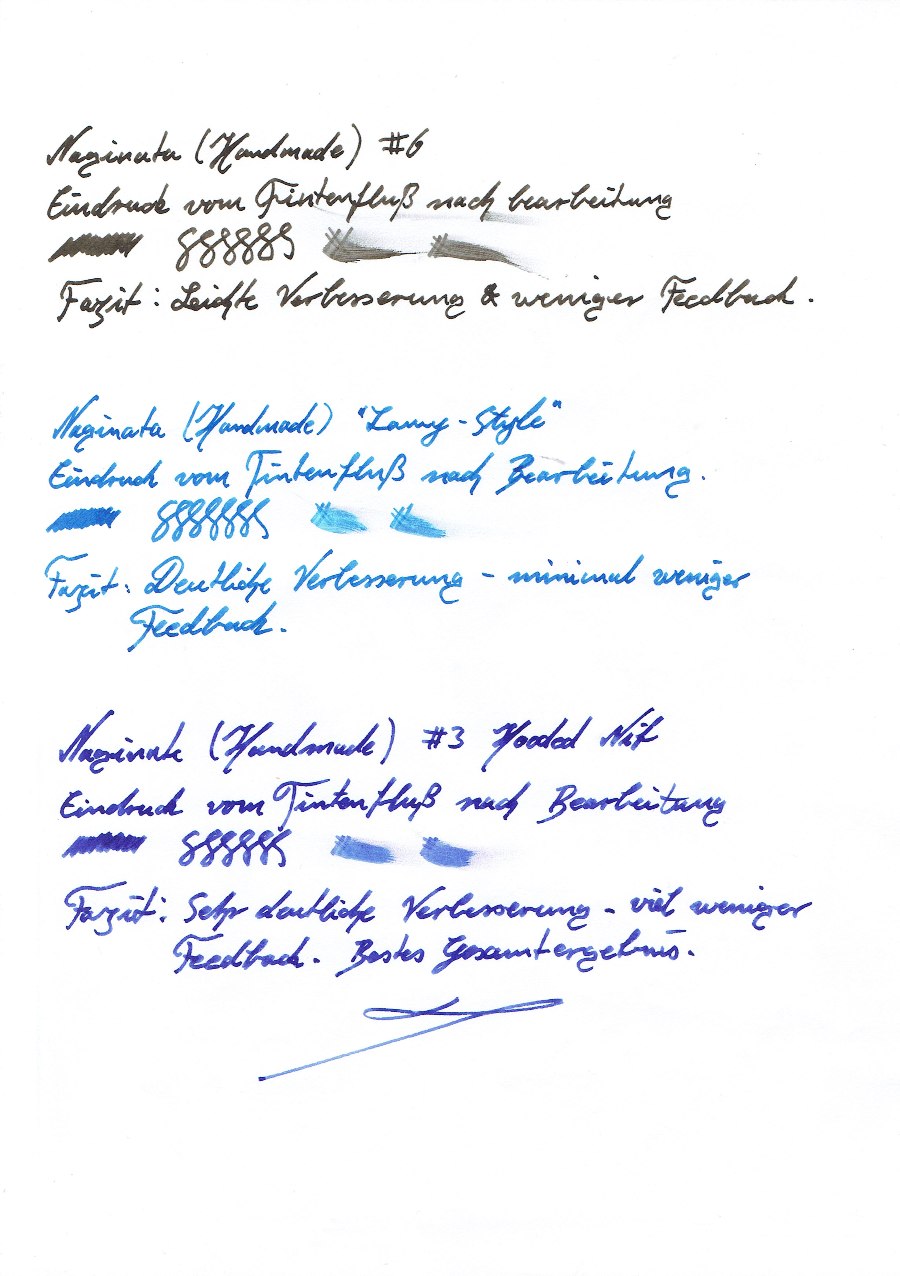 Naginata (Handmade) #6
Eindruck vom Tintenfluß nach bearbeitung
Fazit: Leichte Verbesserung & weniger Feedback.
Naginata (Handmade) "Lamy-Style"
Eindruck vom Tintenfluß nach Bearbeitung.
Fazit: Deutliche Verbesserung - minimal weniger
Feedback.
Naginata (Handmade) #3 Hooded Nib
Eindruck vom Tintenfluß nach Bearbeitung
Fazit: Sehr deutliche Verbesserung - viel weniger
Feedback. Bestes Gesamtergebnis.